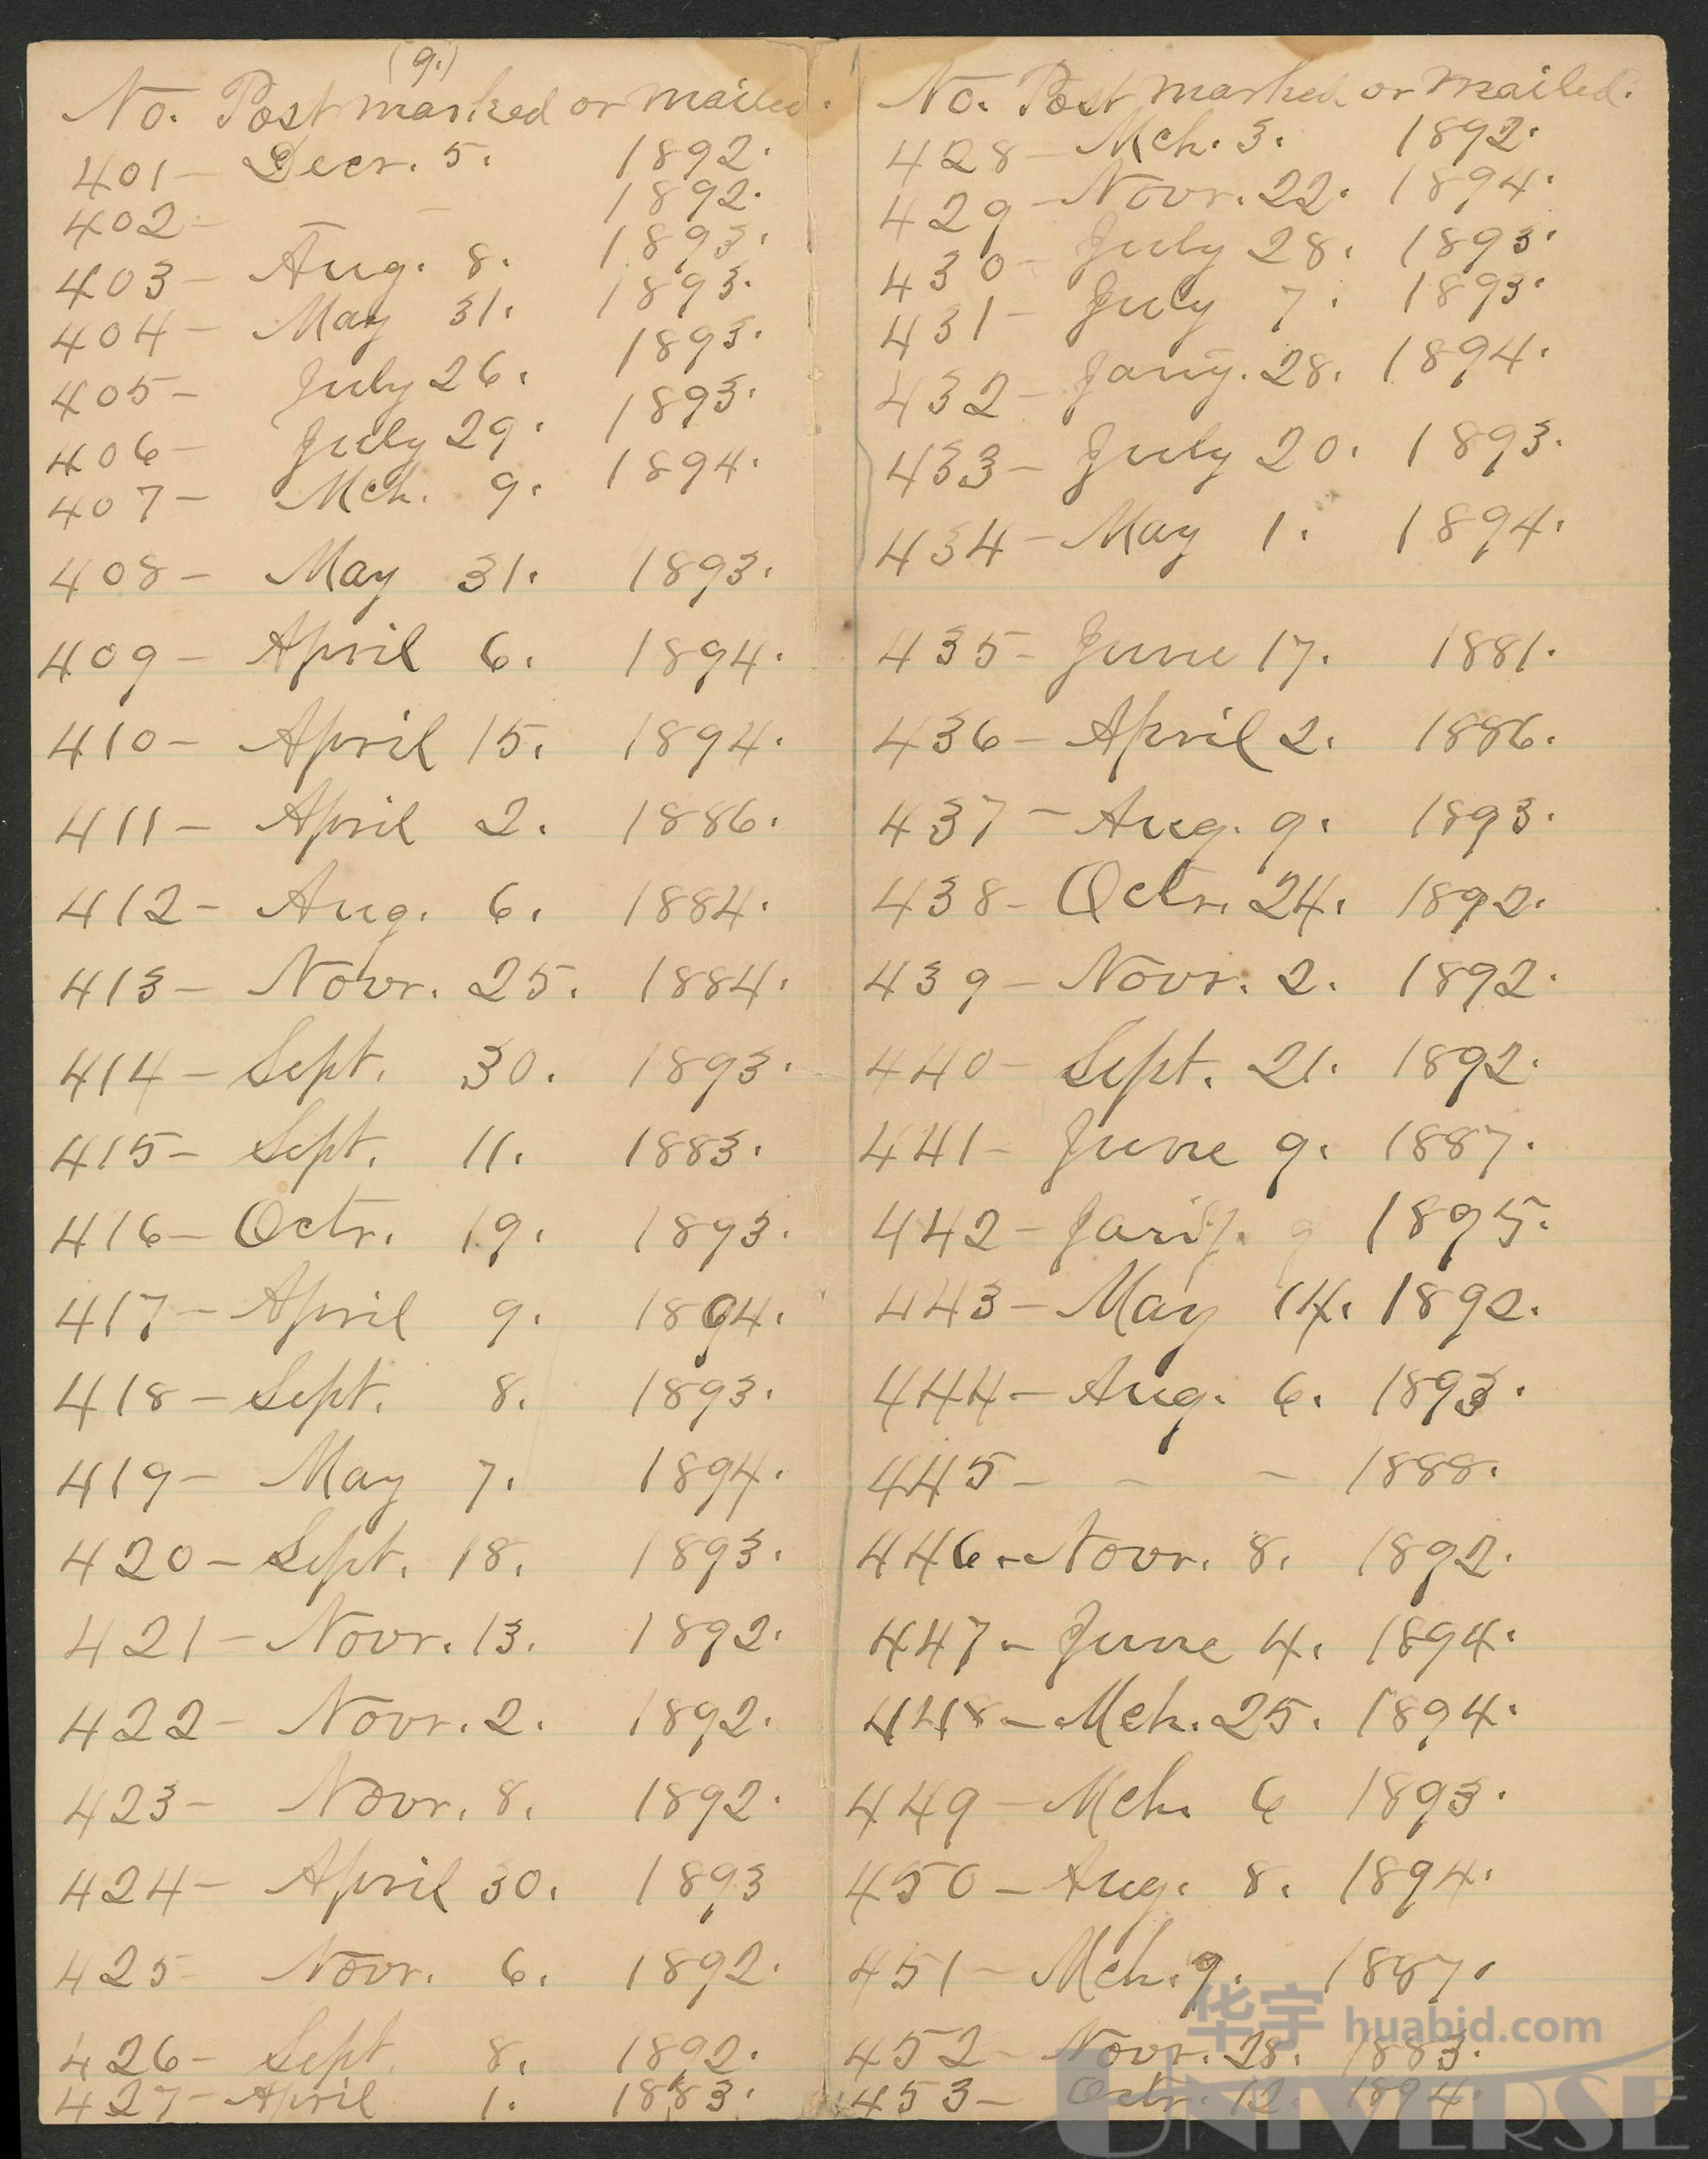 (9.)
No. Postmarked or mailed.
401 – Decr. 5. 1892.
402 – – 1892.
403 – Aug. 8. 1893.
404 – May 31. 1893.
405 – July 26. 1893.
406 – July 29. 1893.
407 – Mch. 9. 1894.
408 – May 31. 1893.
409 – April 6. 1894.
410 – April 15. 1894.
411 – April 2. 1886.
412 – Aug. 6. 1884.
413 – Novr. 25. 1884.
414 – Sept. 30. 1893.
415 – Sept. 11. 1883.
416 – Octr. 19. 1893.
417 – April 9. 1894.
418 – Sept. 8. 1893.
419 – May 7. 1894.
420 – Sept. 18. 1893.
421 – Novr. 13. 1892.
422 – Novr. 2. 1892.
423 – Novr. 8. 1892.
424 – April 30. 1893
425 – Novr. 6. 1892.
426 – Sept. 8. 1892.
427 – April 1. 1883.
No. Postmarked or mailed.
428 – Mch. 3. 1892.
429 – Novr. 22. 1894.
430 – July 28. 1893.
431 – July 7. 1893.
432 – Jany. 28. 1894.
433 – July 20. 1893.
434 – May 1. 1894.
435 – June 17. 1881.
436 – April 2. 1886.
437 – Aug. 9. 1893.
438 – Octr. 24. 1892.
439 – Novr. 2. 1892.
440 – Sept. 21. 1892.
441 – June 9. 1887.
442 – 9 1895.
443 – May 14. 1892.
444 – Aug. 6. 1893.
445 – – – 1888.
446 – Novr. 8. 1892.
447 – June 4. 1894.
448 – Mch. 25. 1894.
449 – Mch. 6 1893.
450 – Aug. 8. 1894.
451 – Mch. 9. 1887.
452 – Novr. 28. 1883.
453 – Octr. 12. 1894.
华宇 huabid.com
UNIVERSE